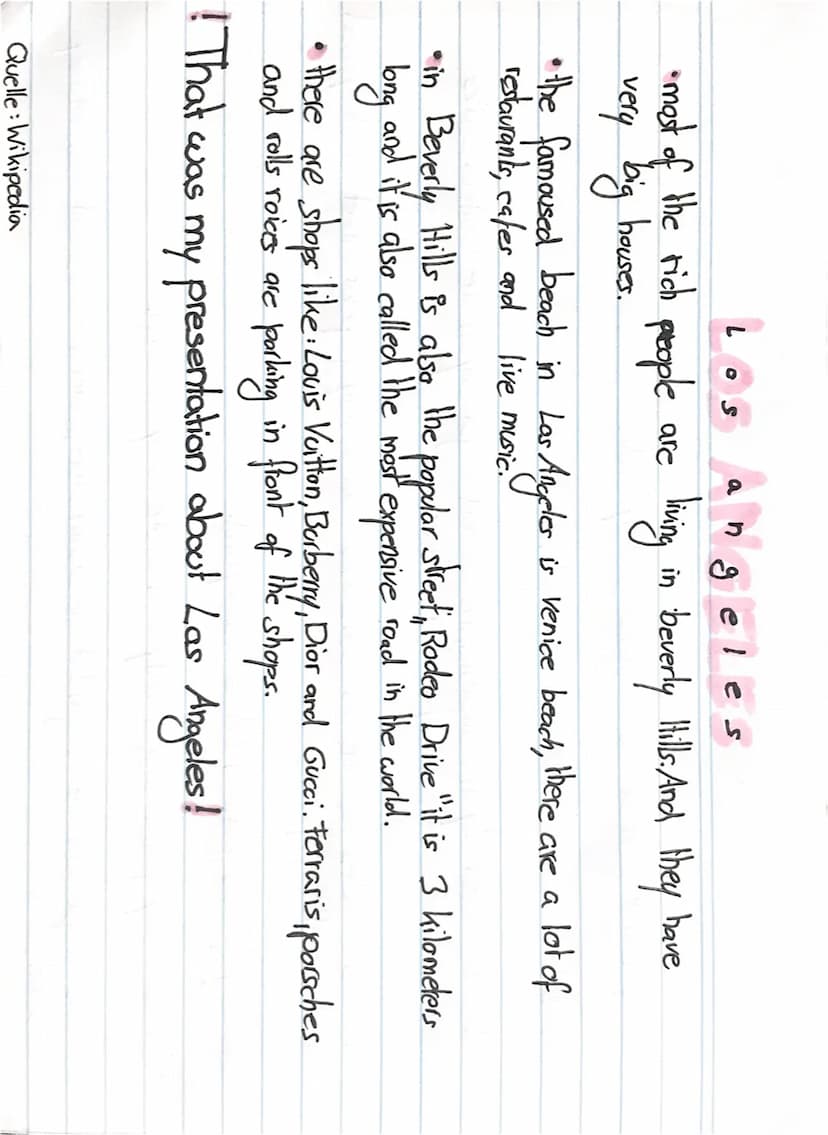 Los angeles
• most of the rich people are living in beverly Hills. And they have
very big houses.
• the famoused beach in Los Angeles is venice beach, there are a lot of
restaurants, cafes and live music.
• in Beverly Hills is also the popular street „Rodeo Drive" it is 3 kilometers
long and it is also called the most expensive road in the world.
• there are shops like: Louis Vuitton, Burberry, Dior and Gucci. Ferraris, porsches
and rolls roices are parking in front of the shops.
! That was my presentation about Los Angeles!
Quelle: Wikipedia